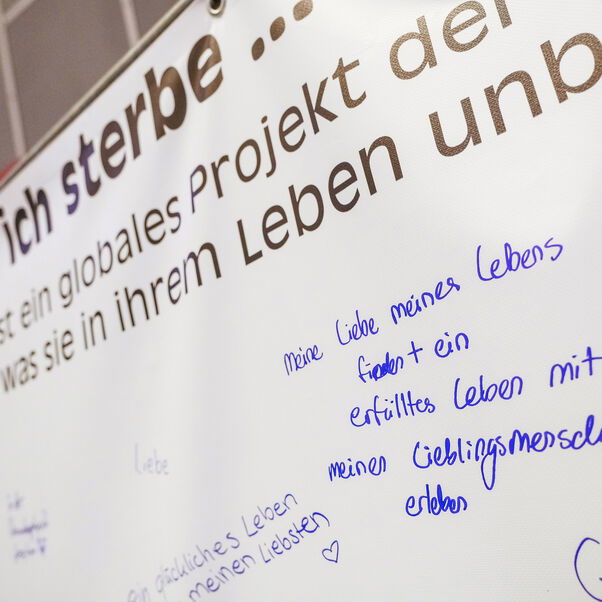 ich sterbe ...
st ein globales Projekt der
was sie in ihrem Leben unb
meine Liebe meines Lebens
finden + ein
erfülltes Leben mit
meinen Lieblingsmensch
erleben
Liebe
ein glückliches Leben
meinen Liebsten
♡
G